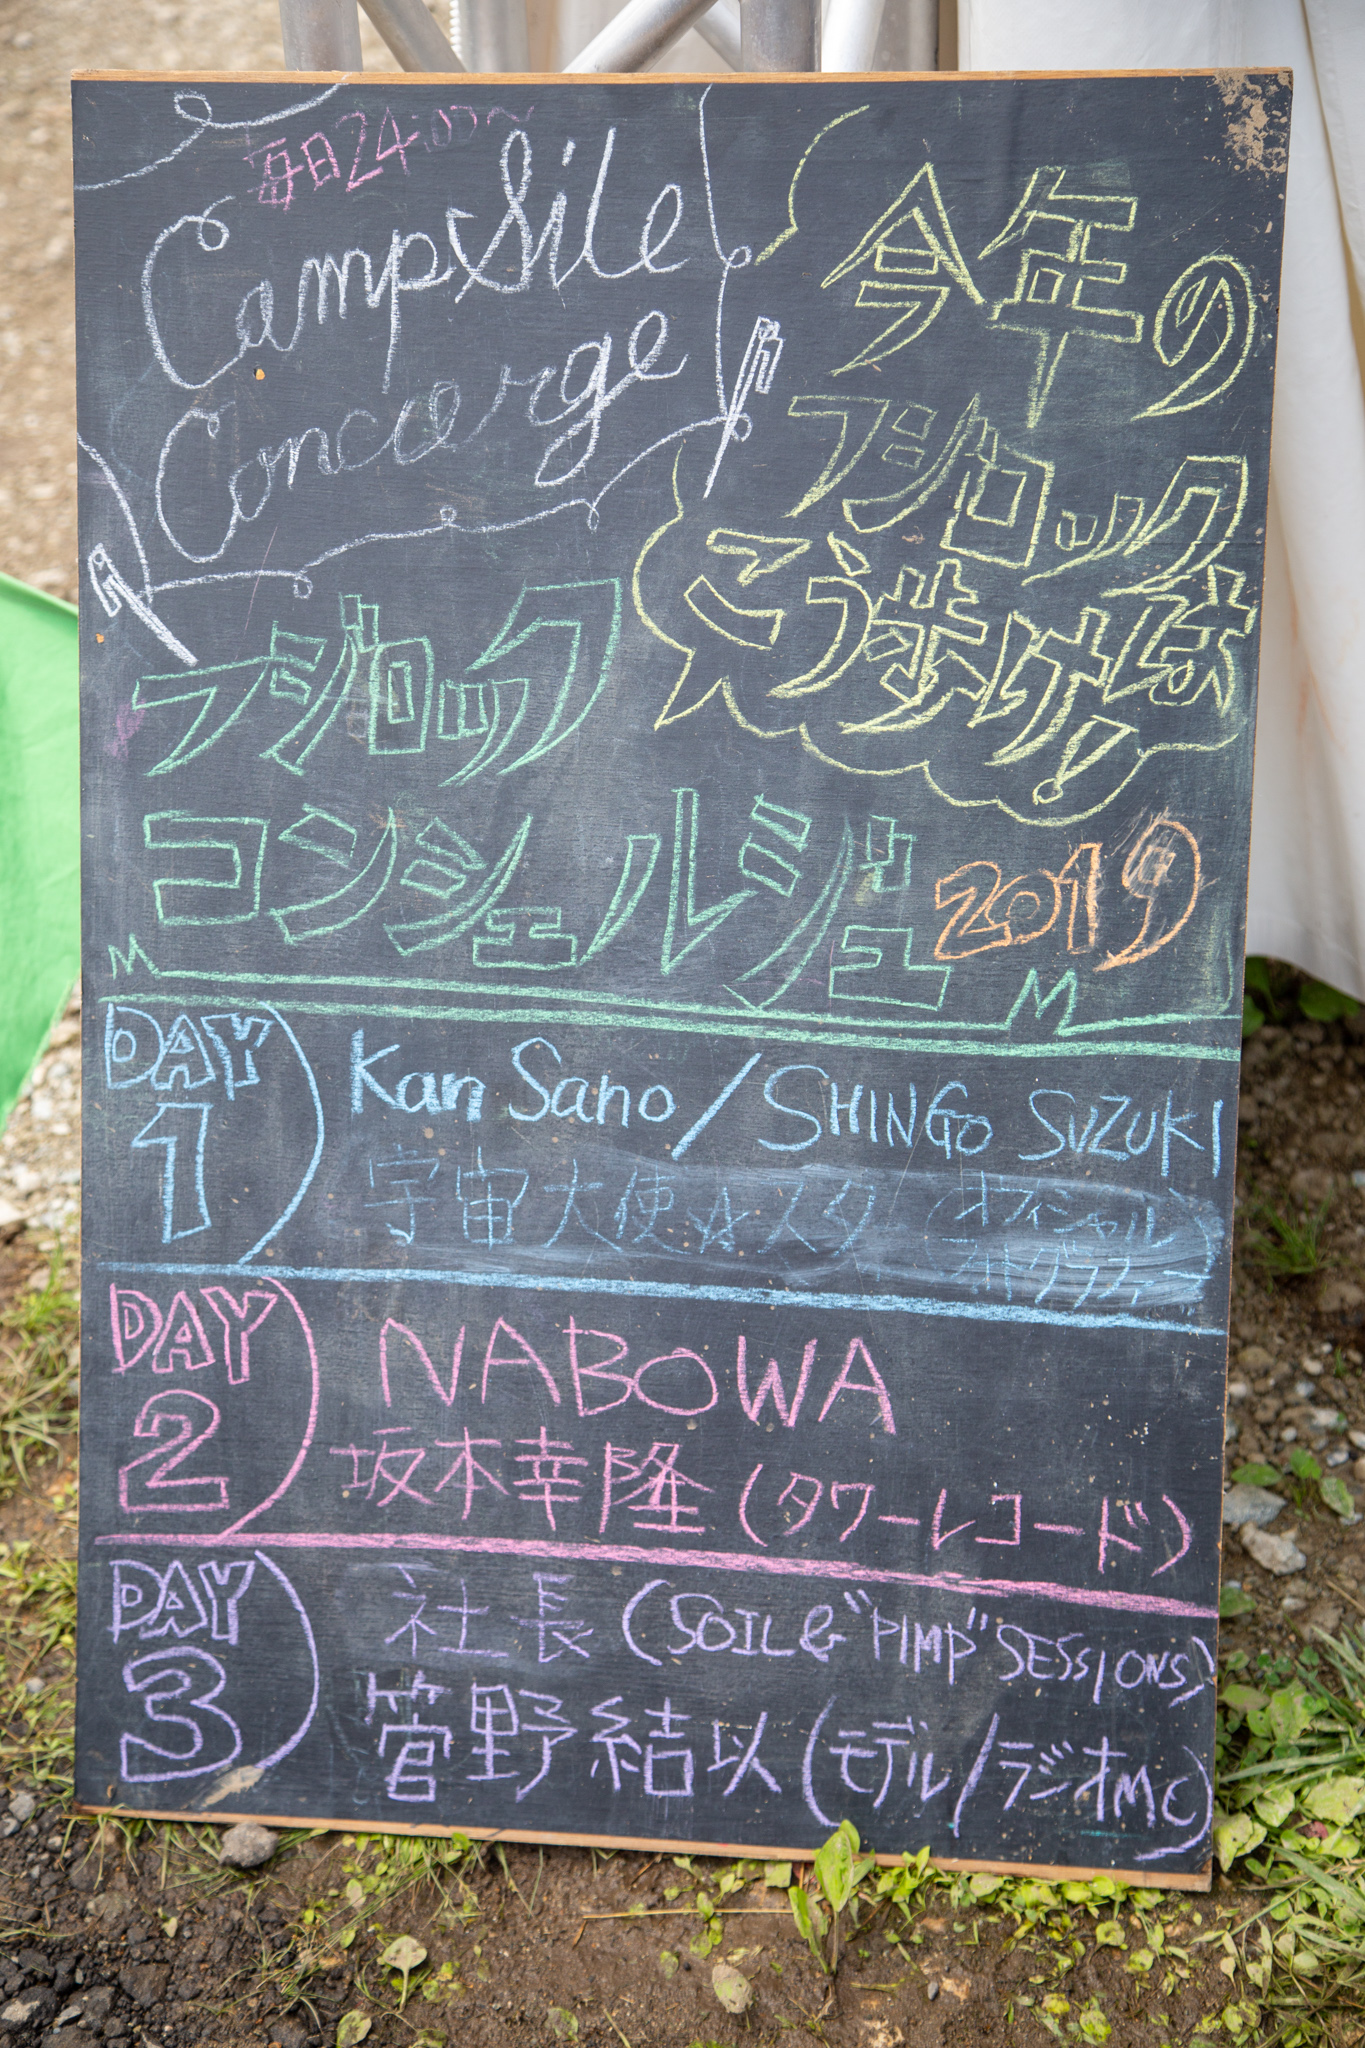 毎日24:00〜
CampSite
Concerge
今年の
フジロック
こうまけは
!
フジロック
コンシェルジュ 2019
DAY
1
Kan Sano / SHINGO SUZUKI
宇宙大使☆スター (オフィシャル
フォトグラファー
DAY
2
NABOWA
坂本幸隆 (タワーレコード)
DAY
3
社長 (SOIL&"PIMP"SESSIONS)
菅野結以 (モデル/ラジオMC)